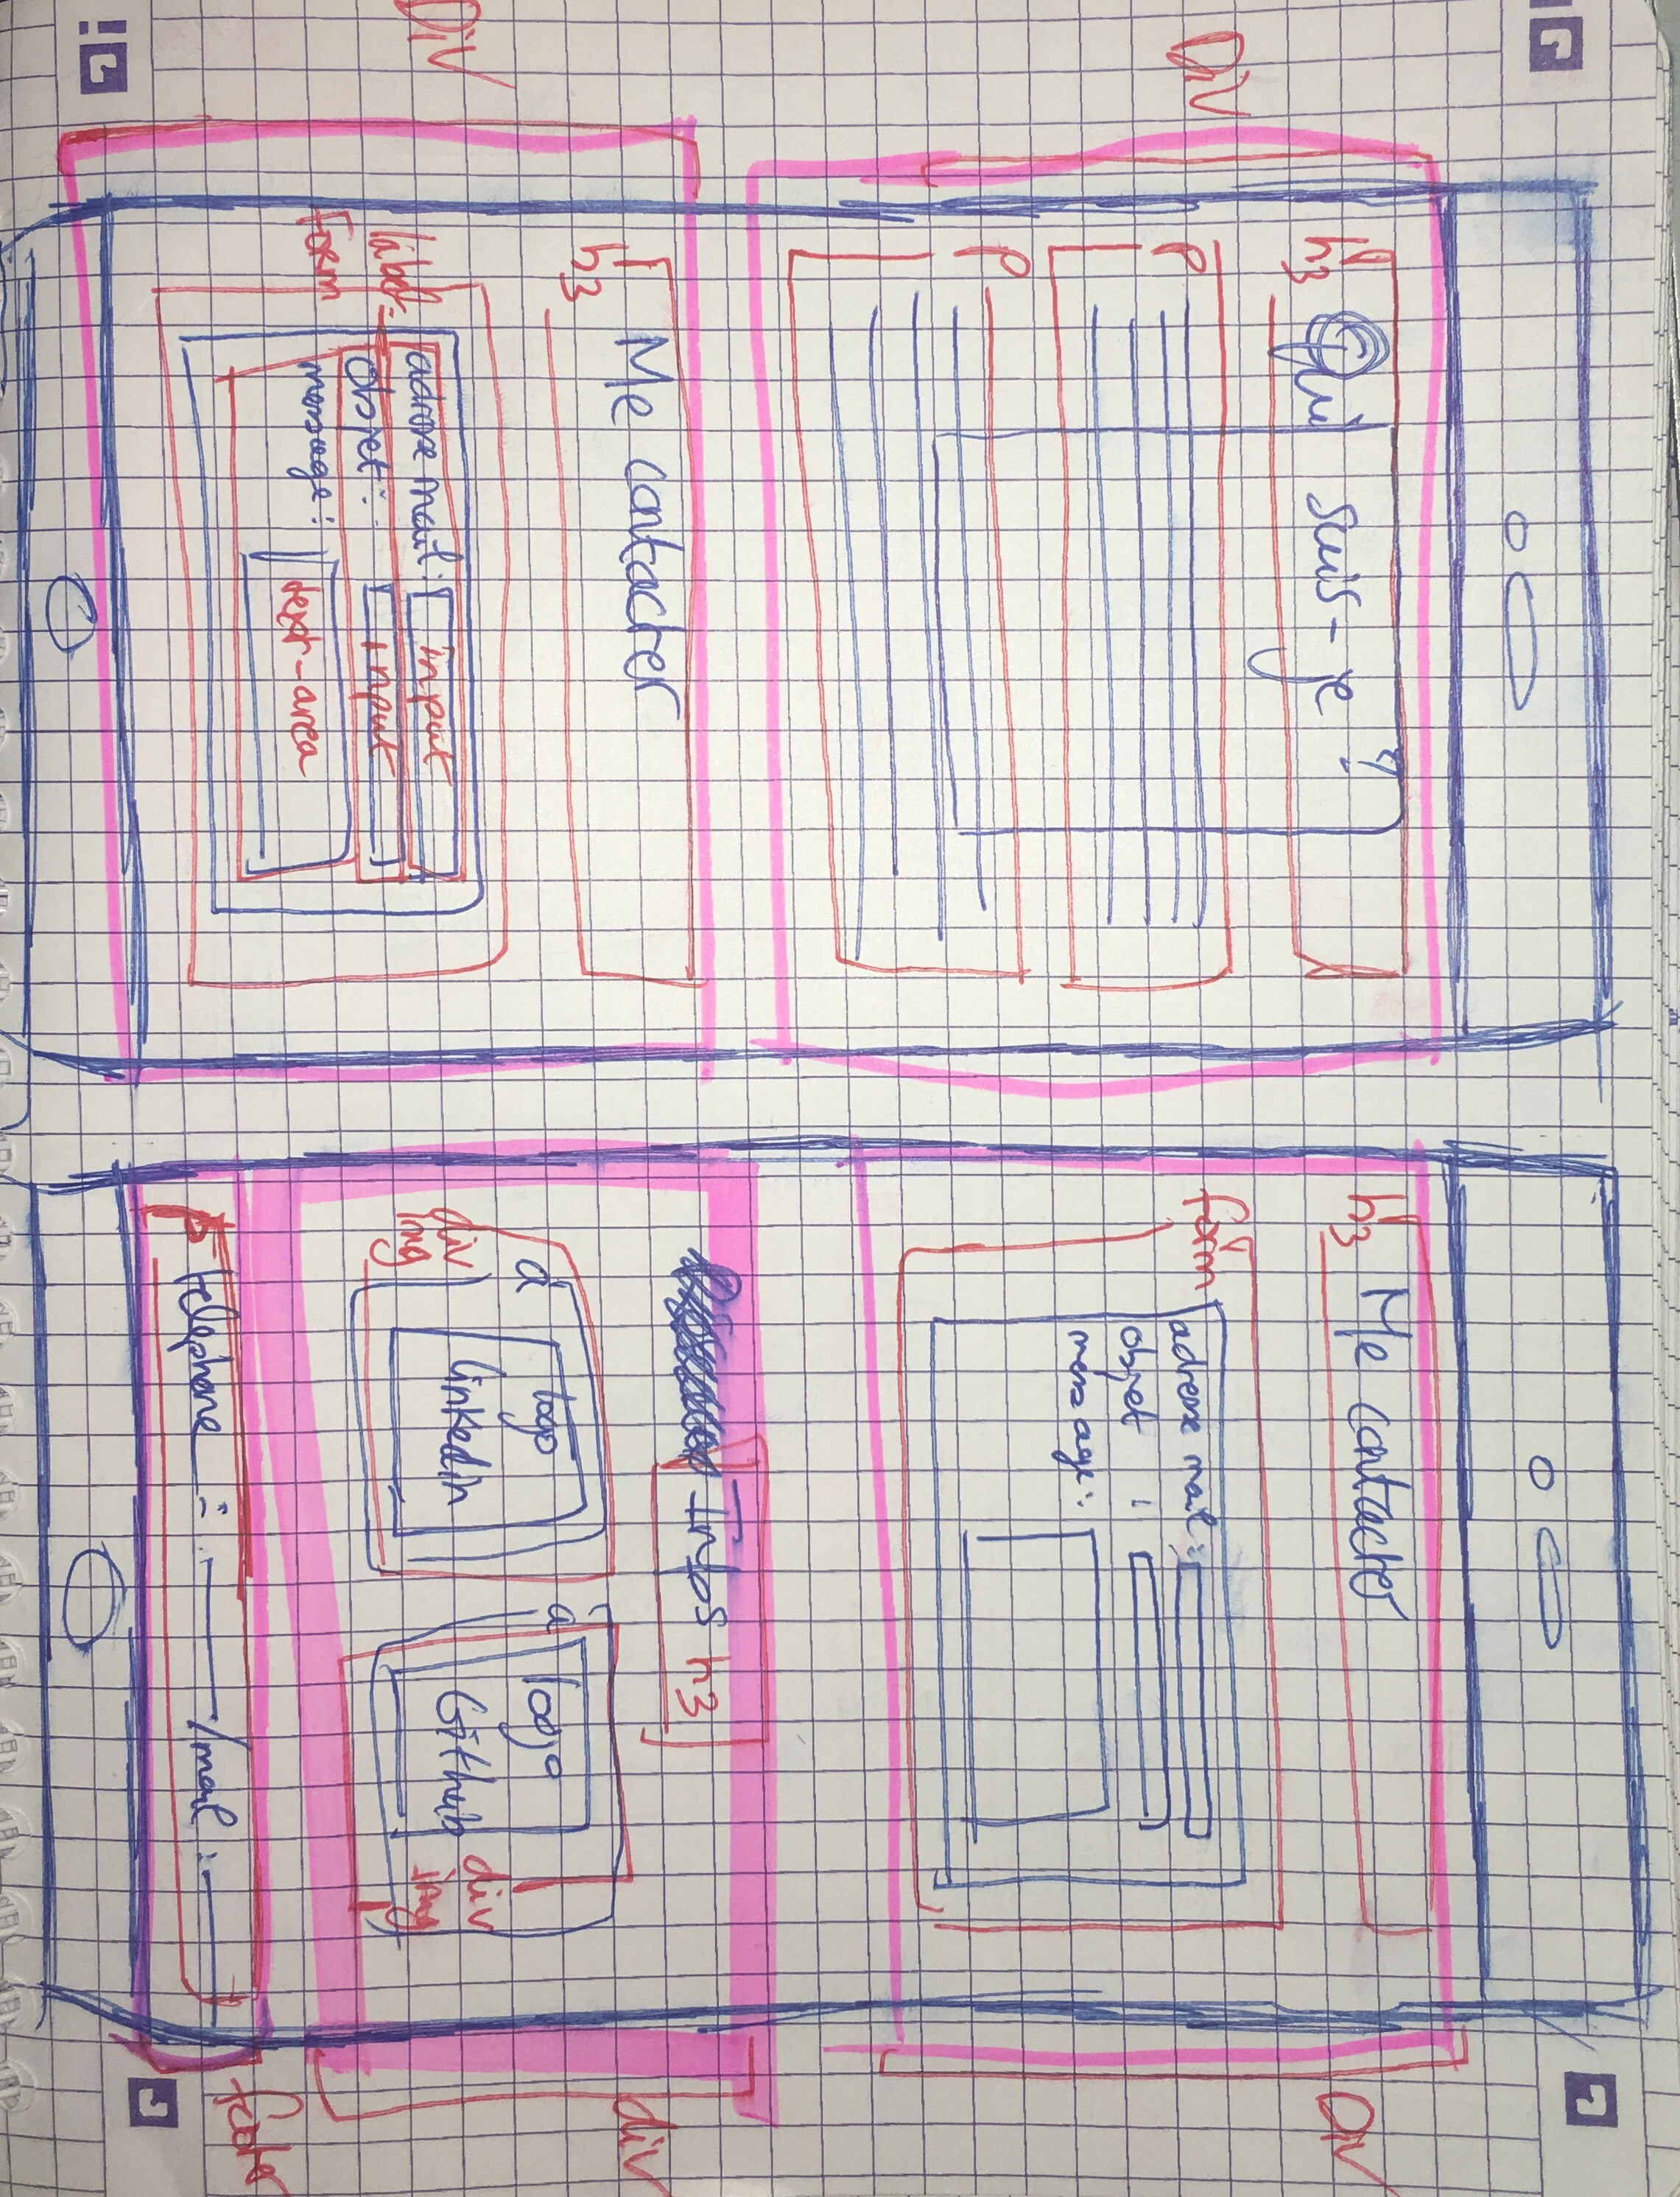 h3 Qui suis-je ?
Div
P
P
h3 Me contacter
Div
label
Form
adresse mail : input
objet : input
message : text-area
h3 Me contacter
Div
form
adresse mail :
objet :
message :
Infos h3
div
a logo linkedin
div img
a logo Github
div img
footer
p telephone : /mail :